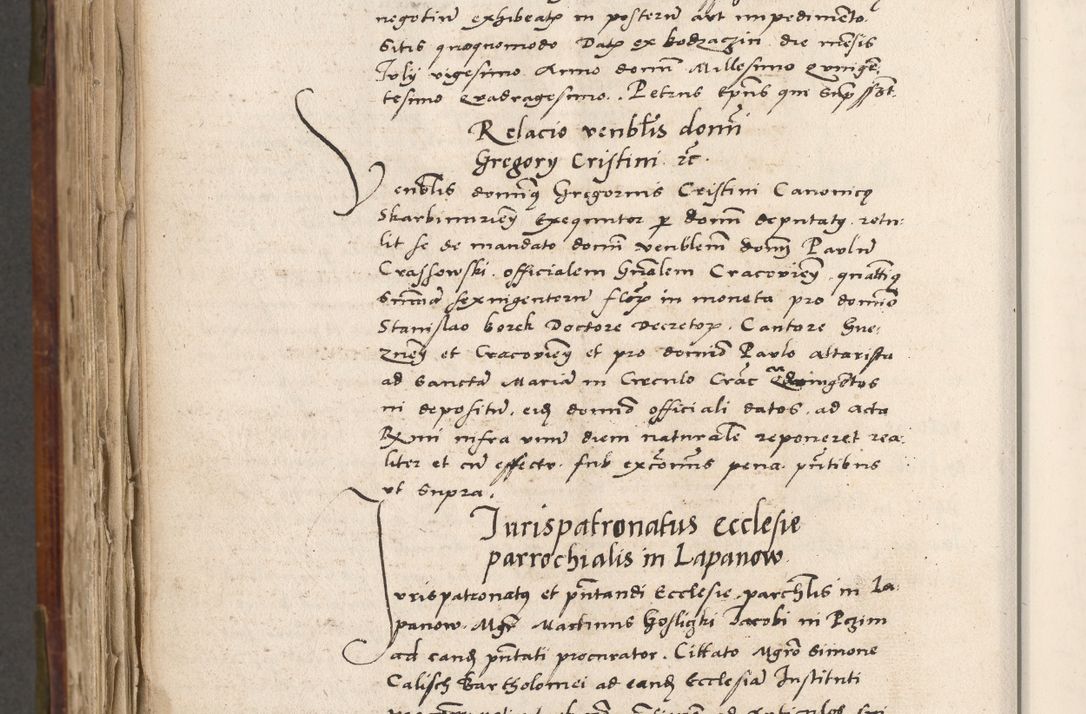 negotium exhibeatr in posterum aut impedimento
Sitis quoquomodo Datr ex bodzaczin die mensis
Iuly vigesimo Anno domini Millesimo quingen
tesimo quadragesimo. Petrus Epūs qui supsst.
Relacio venblis domi
Gregory Cristini zc.
Venblis doming Gregorius Cristini Canonicq
Skarbimirien Exequutor p domū deputatq retu
lit se de mandato domi venblem domū Paulū
Crassowski officialem Gnalem Cracovien
Summa sexingentorū flor in moneta pro domino
Stanislao borek Doctore decretor. Cantore Gne
znen et Cracovien et pro domino Paulo altarista
ad Sanctā Mariā in Circulo Crac quingētos
ni depositū. eid domino officiali datos ad acta
Rmi infra unū diem naturale reponeret rea
liter et cū effectu sub excōmns pena pntibus
ut supra.
Iurispatronatus ecclesie
parrochialis in Lapanow
Iurispatronatq et pntandi Ecclesie parchlis in La
panow Mgr Martinus Iacobi in Rczim
ad eand pntati procurator. Cittato Mgro Simone
Calisch Bartholomei ad eand Ecclesiā Instituti